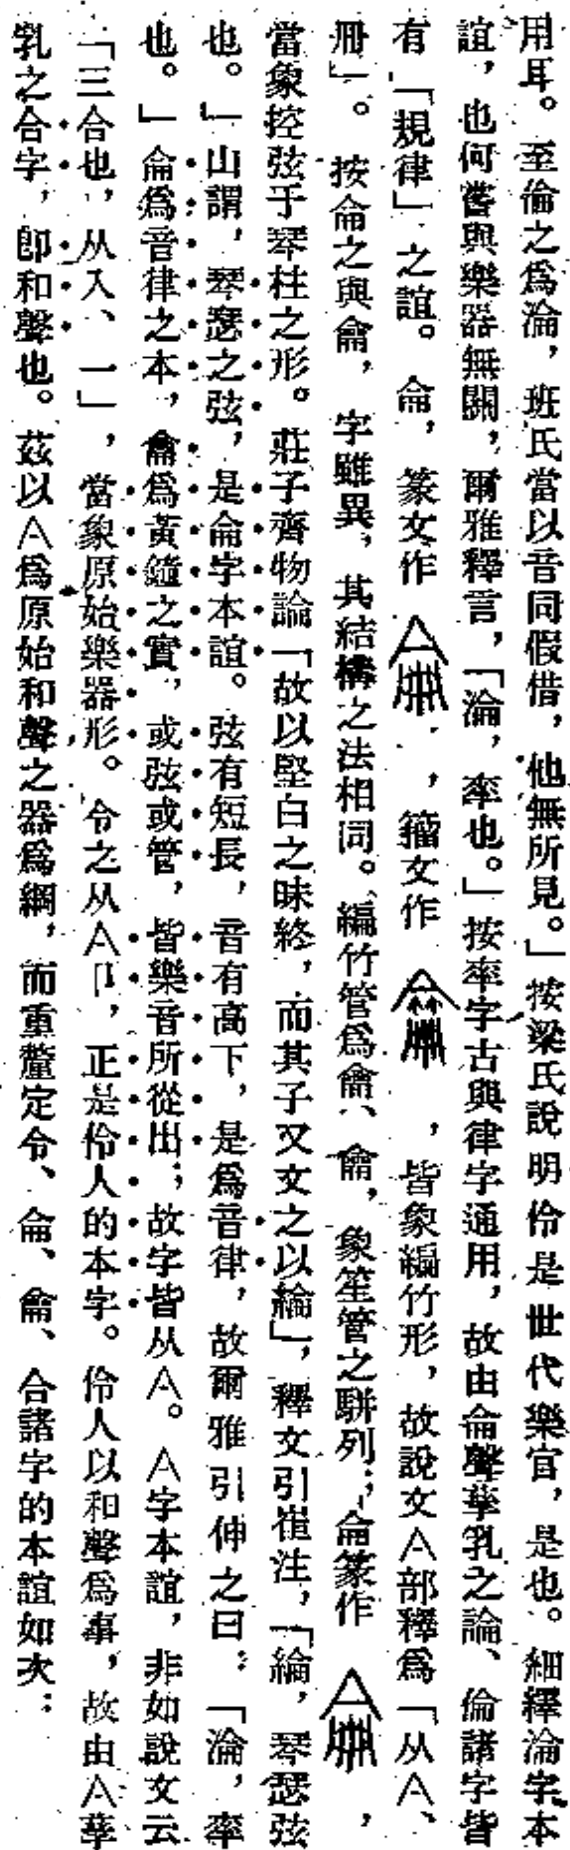 用耳。至倫之爲淪，班氏當以音同假借，他無所見。」按梁氏說明伶是世代樂官，是也。細繹淪字本
誼，也何嘗與樂器無關，爾雅釋言，「淪，率也。」按率字古與律字通用，故由侖聲孳乳之論、倫諸字皆
有「規律」之誼。侖，篆文作，籀文作，皆象編竹形，故說文亼部釋爲「从亼、
冊」。按侖之與龠，字雖異，其結構之法相同。編竹管爲龠、龠，象笙管之駢列；侖篆作，
當象控弦于琴柱之形。莊子齊物論「故以堅白之昧終，而其子又文之以綸」，釋文引崔注，「綸，琴瑟弦
也。」山謂，琴瑟之弦，是侖字本誼。弦有短長，音有高下，是爲音律，故爾雅引伸之曰：「淪，率
也。」侖爲音律之本，龠爲黃鐘之實，或弦或管，皆樂音所從出；故字皆从亼。亼字本誼，非如說文云
「三合也，从入、一」，當象原始樂器形。令之从亼卩，正是伶人的本字。伶人以和聲爲事，故由亼孳
乳之合字，卽和聲也。茲以亼爲原始和聲之器爲綱，而重釐定令、侖、龠、合諸字的本誼如次：